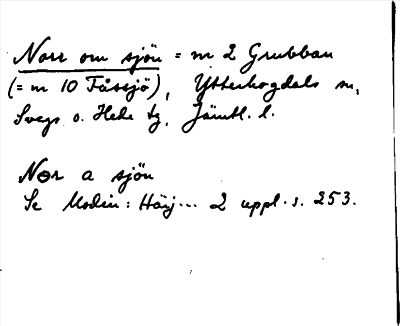 Norr om sjön = nr 2 Grubban
(= nr 10 Fåssjö), Ytterhogdals sn,
Svegs o. Hede tg, Jämtl. l.
Nor a sjön
Se Modin: Härj... 2 uppl. s. 253.